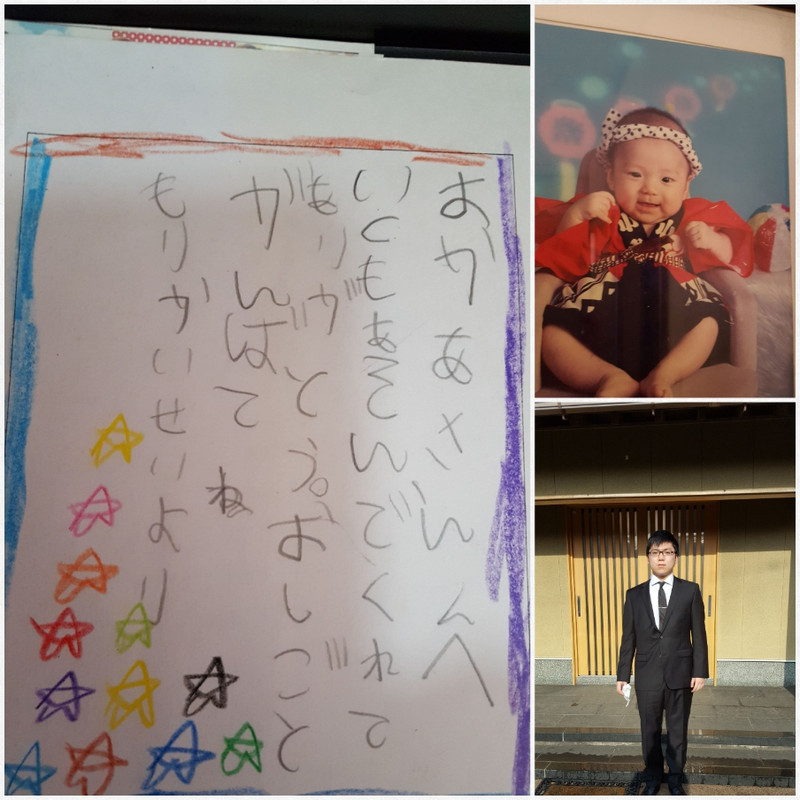 おかあさんへ
いつもあそんでくれて
ありがとう。おしごと
がんばてね
もりかいせいより